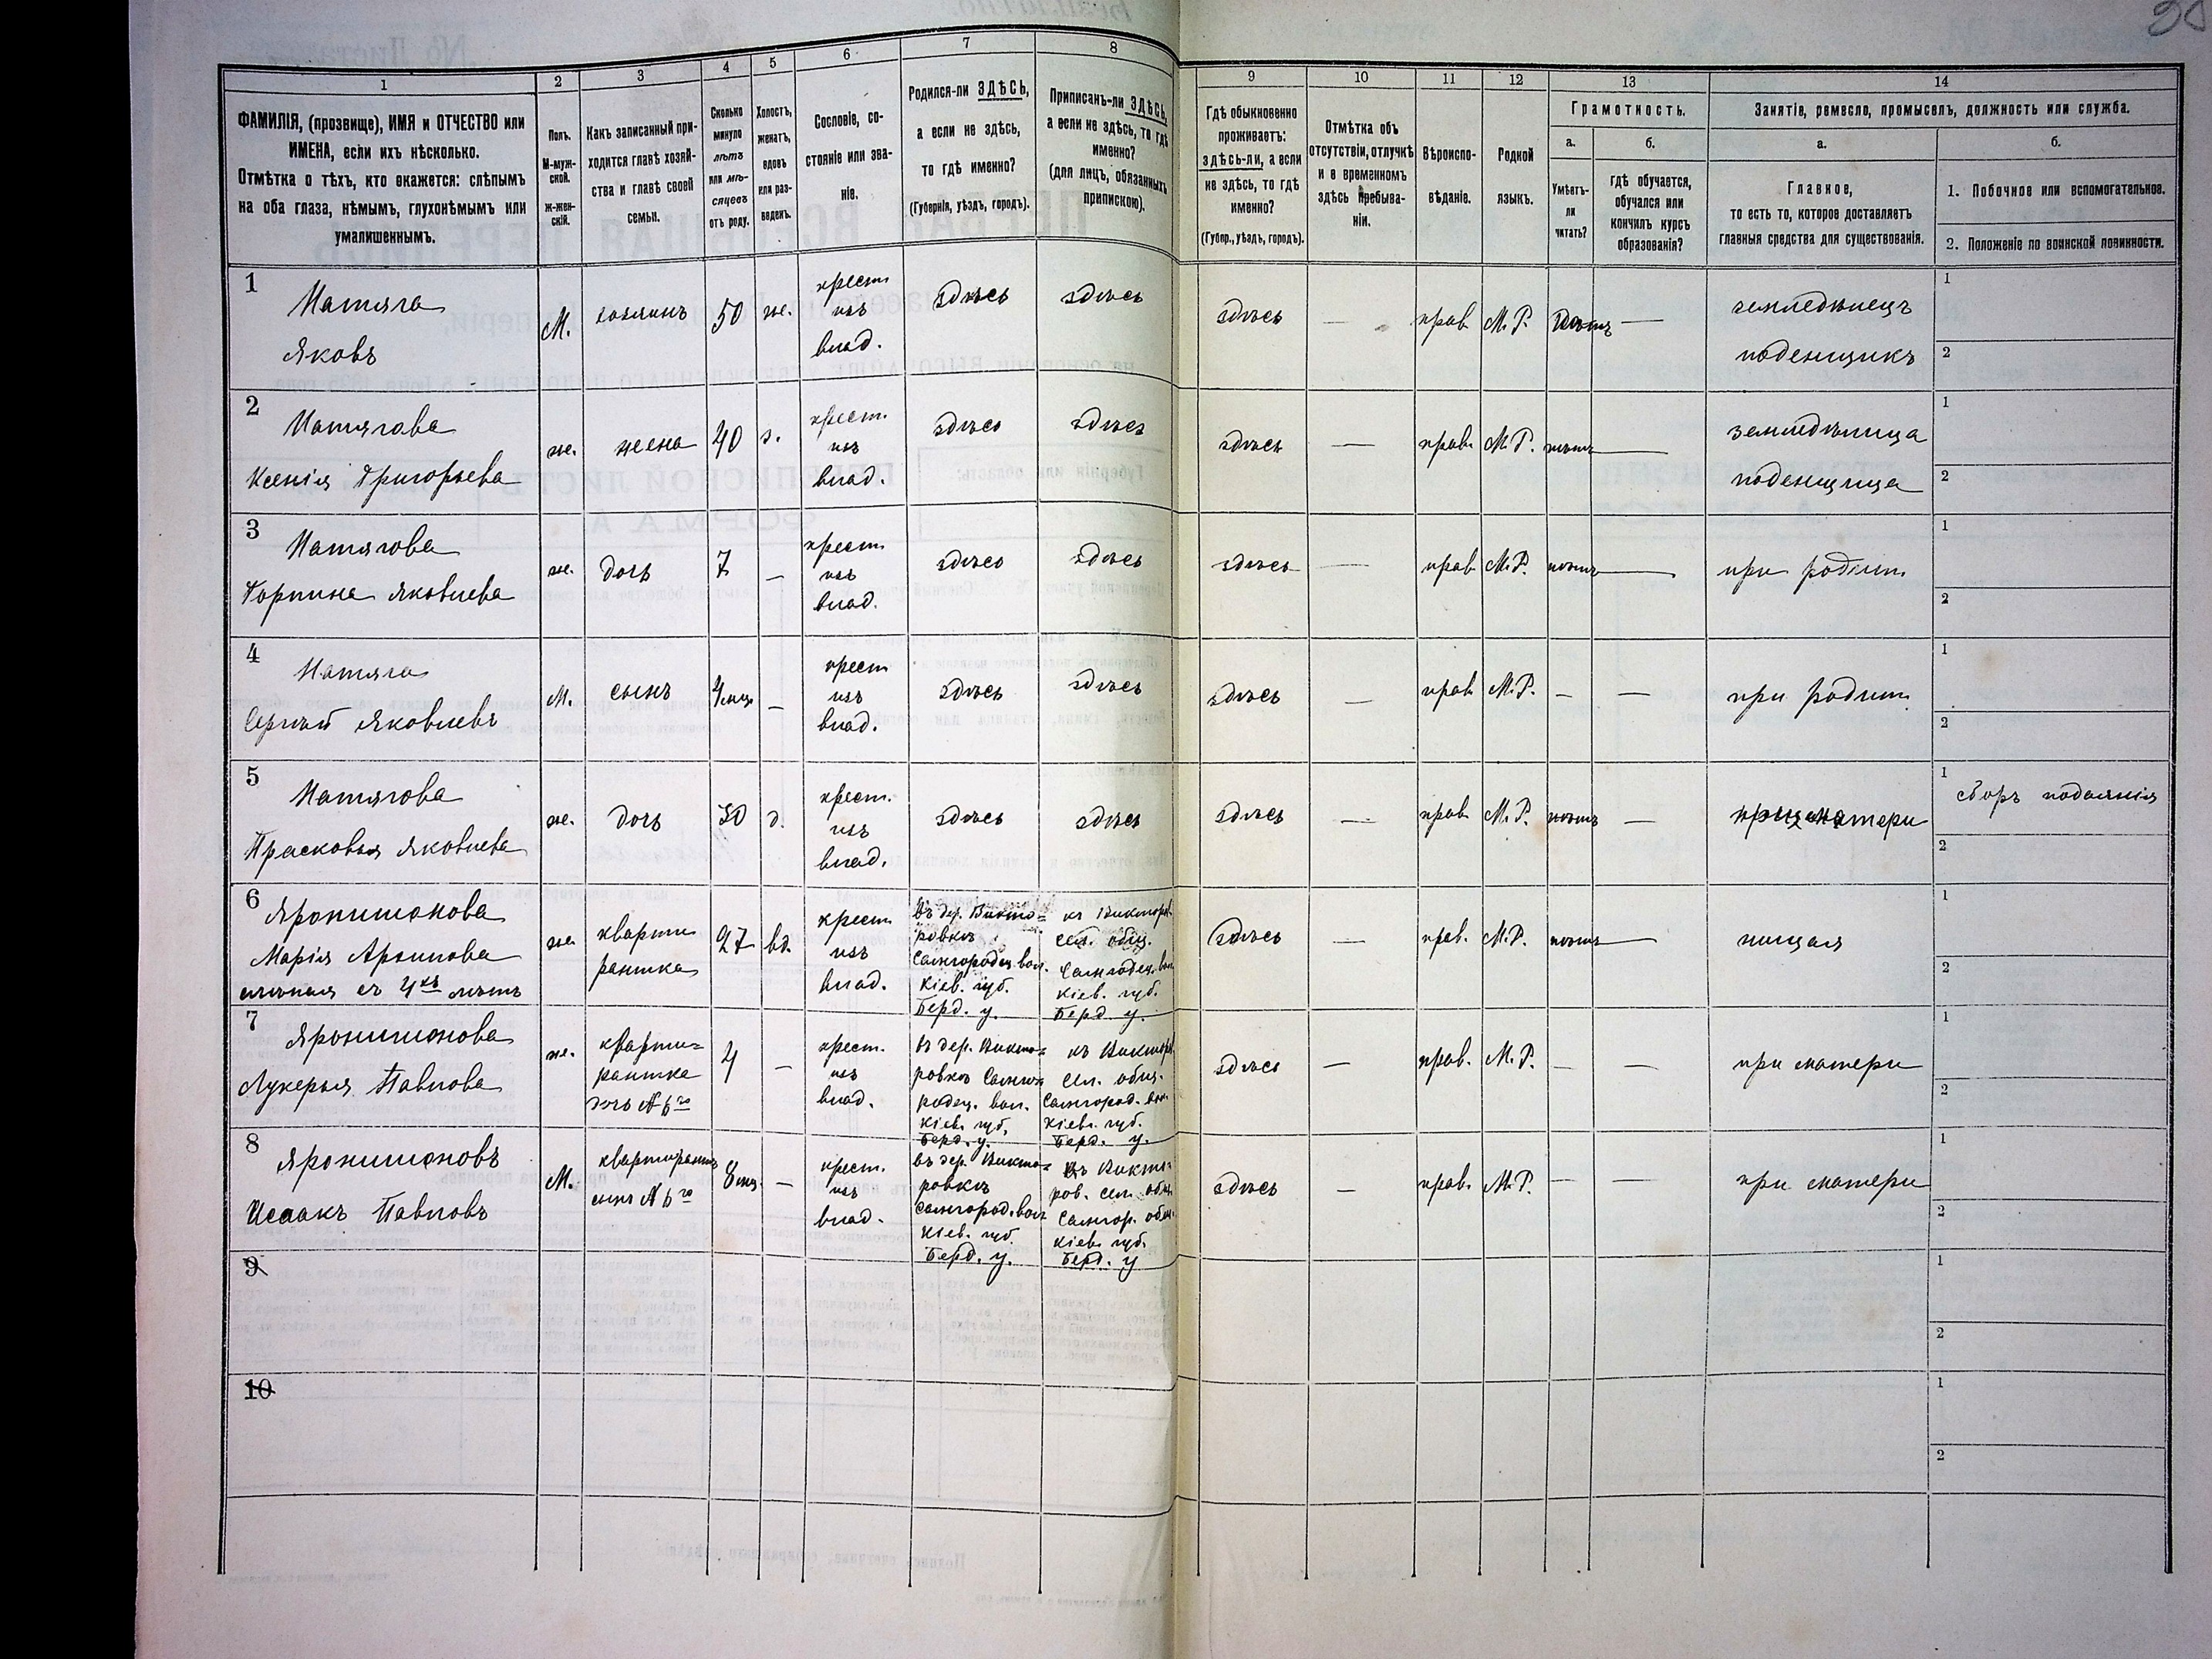 1
2
3
4
5
6
7
8
9
10
11
12
13
14
ФАМИЛІЯ, (прозвище), ИМЯ и ОТЧЕСТВО или
ИМЕНА, если ихъ нѣсколько.
Отмѣтка о тѣхъ, кто окажется: слѣпымъ
на оба глаза, нѣмымъ, глухонѣмымъ или
умалишеннымъ.
Полъ.
М-муж-
ской.
Ж-жен-
скій.
Какъ записанный при-
ходится главѣ хозяй-
ства и главѣ своей
семьи.
Сколько
минуло
лѣтъ
или мѣ-
сяцевъ
отъ роду.
Холостъ,
женатъ,
вдовъ
или раз-
веденъ.
Сословіе, со-
стояніе или зва-
ніе.
Родился-ли ЗДѢСЬ,
а если не здѣсь,
то гдѣ именно?
(Губернія, уѣздъ, городъ).
Приписанъ-ли ЗДѢСЬ,
а если не здѣсь, то гдѣ
именно?
(для лицъ, обязанныхъ
припискою).
Гдѣ обыкновенно
проживаетъ:
здѣсь-ли, а если
не здѣсь, то гдѣ
именно?
(Губер., уѣздъ, городъ).
Отмѣтка объ
отсутствіи, отлучкѣ
и о временномъ
здѣсь пребыва-
ніи.
Вѣроиспо-
вѣданіе.
Родной
языкъ.
Грамотность.
а.
Умѣетъ-
ли
читать?
б.
гдѣ обучается,
обучался или
кончилъ курсъ
образованія?
Занятіе, ремесло, промыселъ, должность или служба.
а.
Главное,
то есть то, которое доставляетъ
главныя средства для существованія.
б.
1. Побочное или вспомогательное.
2. Положеніе по воинской повинности.
1
Натяга
Яковъ
М.
хозяинъ
50
же.
крест.
изъ
влад.
здѣсь
здѣсь
здѣсь
—
прав.
М. Р.
—
земледѣлецъ
поденщикъ
1
2
2
Натягова
Ксенія Григорьева
же.
жена
40
з.
крест.
изъ
влад.
здѣсь
здѣсь
здѣсь
—
прав.
М. Р.
нѣтъ
—
земледѣлица
поденщица
1
2
3
Натягова
Горпина Яковлева
же.
дочь
7
—
крест.
изъ
влад.
здѣсь
здѣсь
здѣсь
—
прав.
М. Р.
нѣтъ
—
при родит.
1
2
4
Натяга
Сергѣй Яковлевъ
М.
сынъ
4 мц.
—
крест.
изъ
влад.
здѣсь
здѣсь
здѣсь
—
прав.
М. Р.
—
—
при родит.
1
2
5
Натягова
Прасковья Яковлева
же.
дочь
30
д.
крест.
изъ
влад.
здѣсь
здѣсь
здѣсь
—
прав.
М. Р.
нѣтъ
—
1 сборъ подаянія
2
6
Марія
съ 4хъ лѣтъ
же.
кварти-
рантка
27
вд.
крест.
изъ
влад.
въ дер. Викто=
ровкѣ
Самгородец. вол.
Кіев. губ.
Берд. у.
къ Викторов.
сел. общ.
Самгородец. вол.
Кіев. губ.
Берд. у.
здѣсь
—
прав.
М. Р.
нѣтъ
—
нищая
1
2
7
Лукерья Павлова
же.
кварти=
рантка
дочь № 6го
4
—
крест.
изъ
влад.
въ дер. Викто=
ровкѣ Самго=
родец. вол.
Кіев. губ.
Берд. у.
къ Виктор.
сел. общ.
Самгород. вол.
Кіев. губ.
Берд. у.
здѣсь
—
прав.
М. Р.
—
—
при матери
1
2
8
Исаакъ Павловъ
М.
квартирантъ
сынъ № 6го
8 мц.
—
крест.
изъ
влад.
въ дер. Викто=
ровкѣ
Самгород. вол.
Кіев. губ.
Берд. у.
къ Викто-
ров. сел. общ.
Самгор. общ.
Кіев. губ.
Берд. у
здѣсь
—
прав.
М. Р.
—
—
при матери
1
2
9
1
2
10
1
2